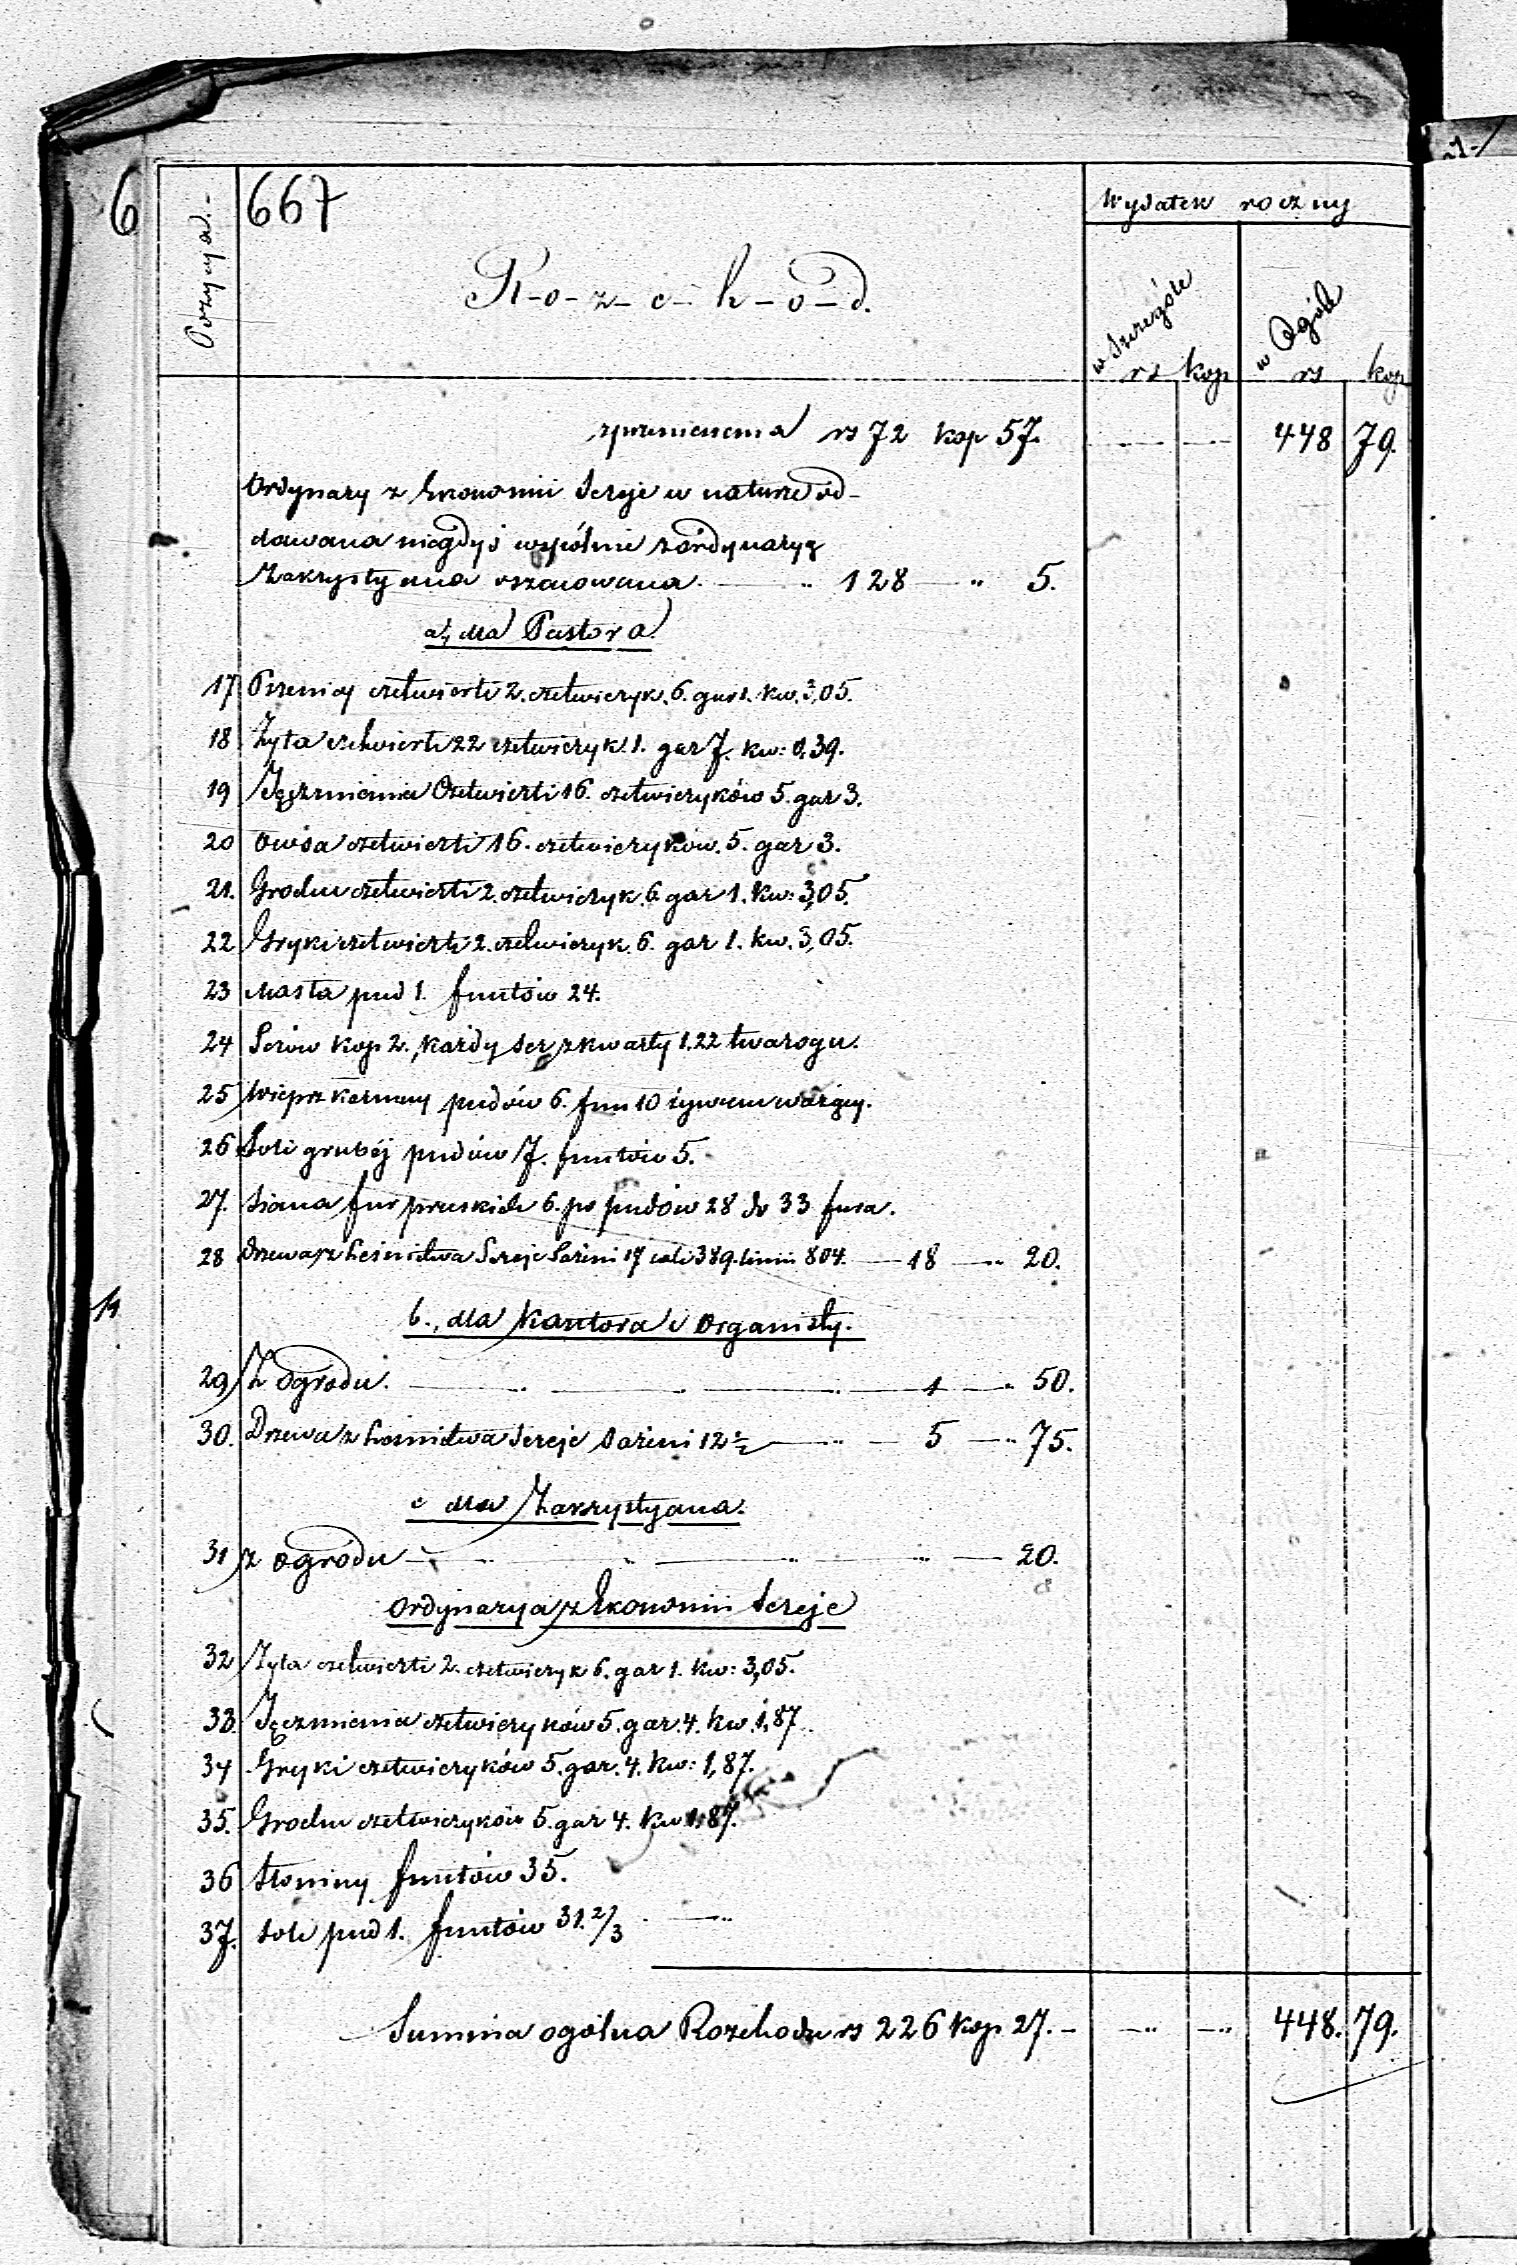 6
667
Pozycja.-
R-o-z-c-h-o-d.
Wydatek roczny
w Szczególe
w Ogóle
rs kop rs kop
z przeniesienia rs 72 kop 57. 448 79.
Ordynary z Ekonomii Sereje w naturze od-
dawana niegdyś wspólnie z ordynaryą
Zakrystyana oszacowana. 128 " 5.
a, dla Pastora
17 Pszenicy czetwierti 2. czetwieryk. 6. gar 1. kw. 3,05.
18 Zyta czetwierti 22 czetwieryk 1. gar 7. kw: 0,39.
19 Jęczmienia Czetwierti 16. czetwieryków 5. gar 3.
20 Owsa czetwierti 16. czetwieryków. 5. gar 3.
21. Grochu czetwierti 2. czetwieryk. 6. gar 1. kw: 3,05.
22 Gryki czetwierti 2. czetwieryk. 6. gar 1. kw. 3,05.
23 Masła pud 1. funtów 24.
24 Serów kop 2. każdy ser z kwarty 1.22 twarogu.
25 Wieprz karmny pudów 6. fun 10 żywcem ważący.
26 Soli grubéj pudów 7. funtów 5.
27. Siana fur pruskich 6. po pudów 28 do 33 fura.
28 Drzewa z Leśnictwa Sereje Sażeni 17 cali 389. linii 804. 18 " 20.
b., dla Kantora i Organisty.
29 Z Ogrodu. 1 " 50.
30. Drzewa z Leśnictwa Sereje Sażeni 12 ½ 5 " 75.
c dla Zakrystyana.
31 z ogrodu 20.
Ordynarya z Ekonomii Sereje
32 Zyta czetwierti 2. czetwieryk 6. gar 1. kw: 3,05.
33. Jęczmienia czetwieryków 5. gar. 4. kw. 1,87.
34 Gryki czetwieryków 5. gar. 4. kw: 1,87.
35. Grochu czetwieryków 5. gar 4. kw 1,87.
36 Słoniny funtów 35.
37. Soli pud 1. funtów 31. 2/3
Summa ogólna Rozchodu rs 226 kop 27. - 448. 79.